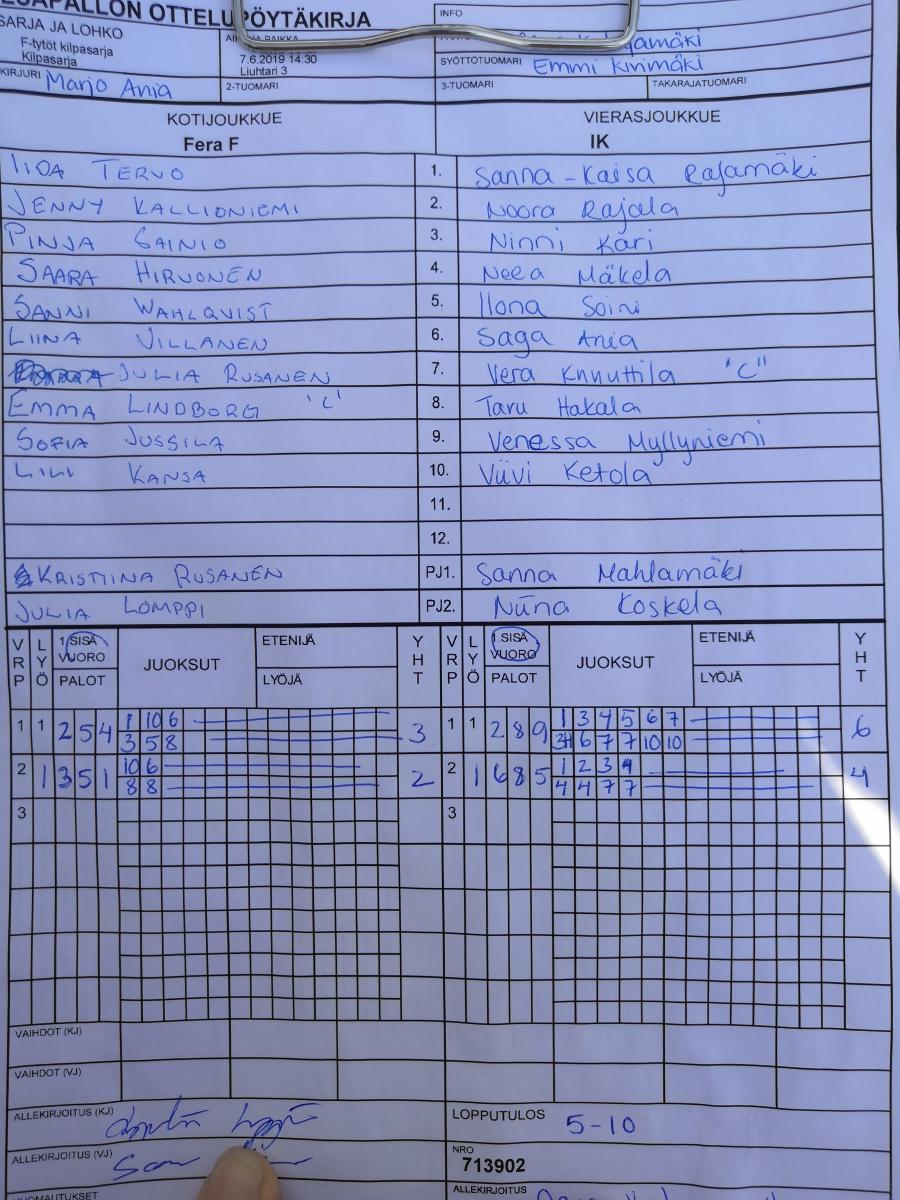 PESÄPALLON OTTELUPÖYTÄKIRJA
INFO
SARJA JA LOHKO
F-tytöt kilpasarja
Kilpasarja
7.6.2019 14:30
Liuhtari 3
SYÖTTÖTUOMARI Emmi Kinimäki
KIRJURI Marjo Ania
2-TUOMARI
3-TUOMARI
TAKARAJATUOMARI
KOTIJOUKKUE VIERASJOUKKUE
Fera F IK
IIDA TERVO 1. Sanna-Kaisa Rajamäki
JENNY KALLIONIEMI 2. Noora Rajala
PINJA SAINIO 3. Ninni Kari
SAARA HIRVONEN 4. Neea Mäkelä
SANNI WAHLQVIST 5. Ilona Soini
LIINA VILLANEN 6. Saga Ania
JULIA RUSANEN 7. Vera Knuuttila "C"
EMMA LINDBORG 'C' 8. Taru Hakala
SOFIA JUSSILA 9. Venessa Myllyniemi
LILI KANSA 10. Viivi Ketola
11.
12.
KRISTIINA RUSANEN PJ1. Sanna Mahlamäki
JULIA LOMPPI PJ2. Niina Koskela
VRP LYÖ 1.SISÄ VUORO PALOT JUOKSUT ETENIJÄ LYÖJÄ YHT VRP LYÖ 1.SISÄ VUORO PALOT JUOKSUT ETENIJÄ LYÖJÄ YHT
1 1 2 5 4 1 10 6 3 1 1 2 8 9 1 3 4 5 6 7 6
3 5 8 6 7 7 10 10
2 1 3 5 1 10 6 2 2 1 6 8 5 1 2 3 4 4
8 8 4 4 7 7
3 3
VAIHDOT (KJ)
VAIHDOT (VJ)
ALLEKIRJOITUS (KJ)
LOPPUTULOS 5-10
ALLEKIRJOITUS (VJ)
NRO
713902
HUOMAUTUKSET
ALLEKIRJOITUS